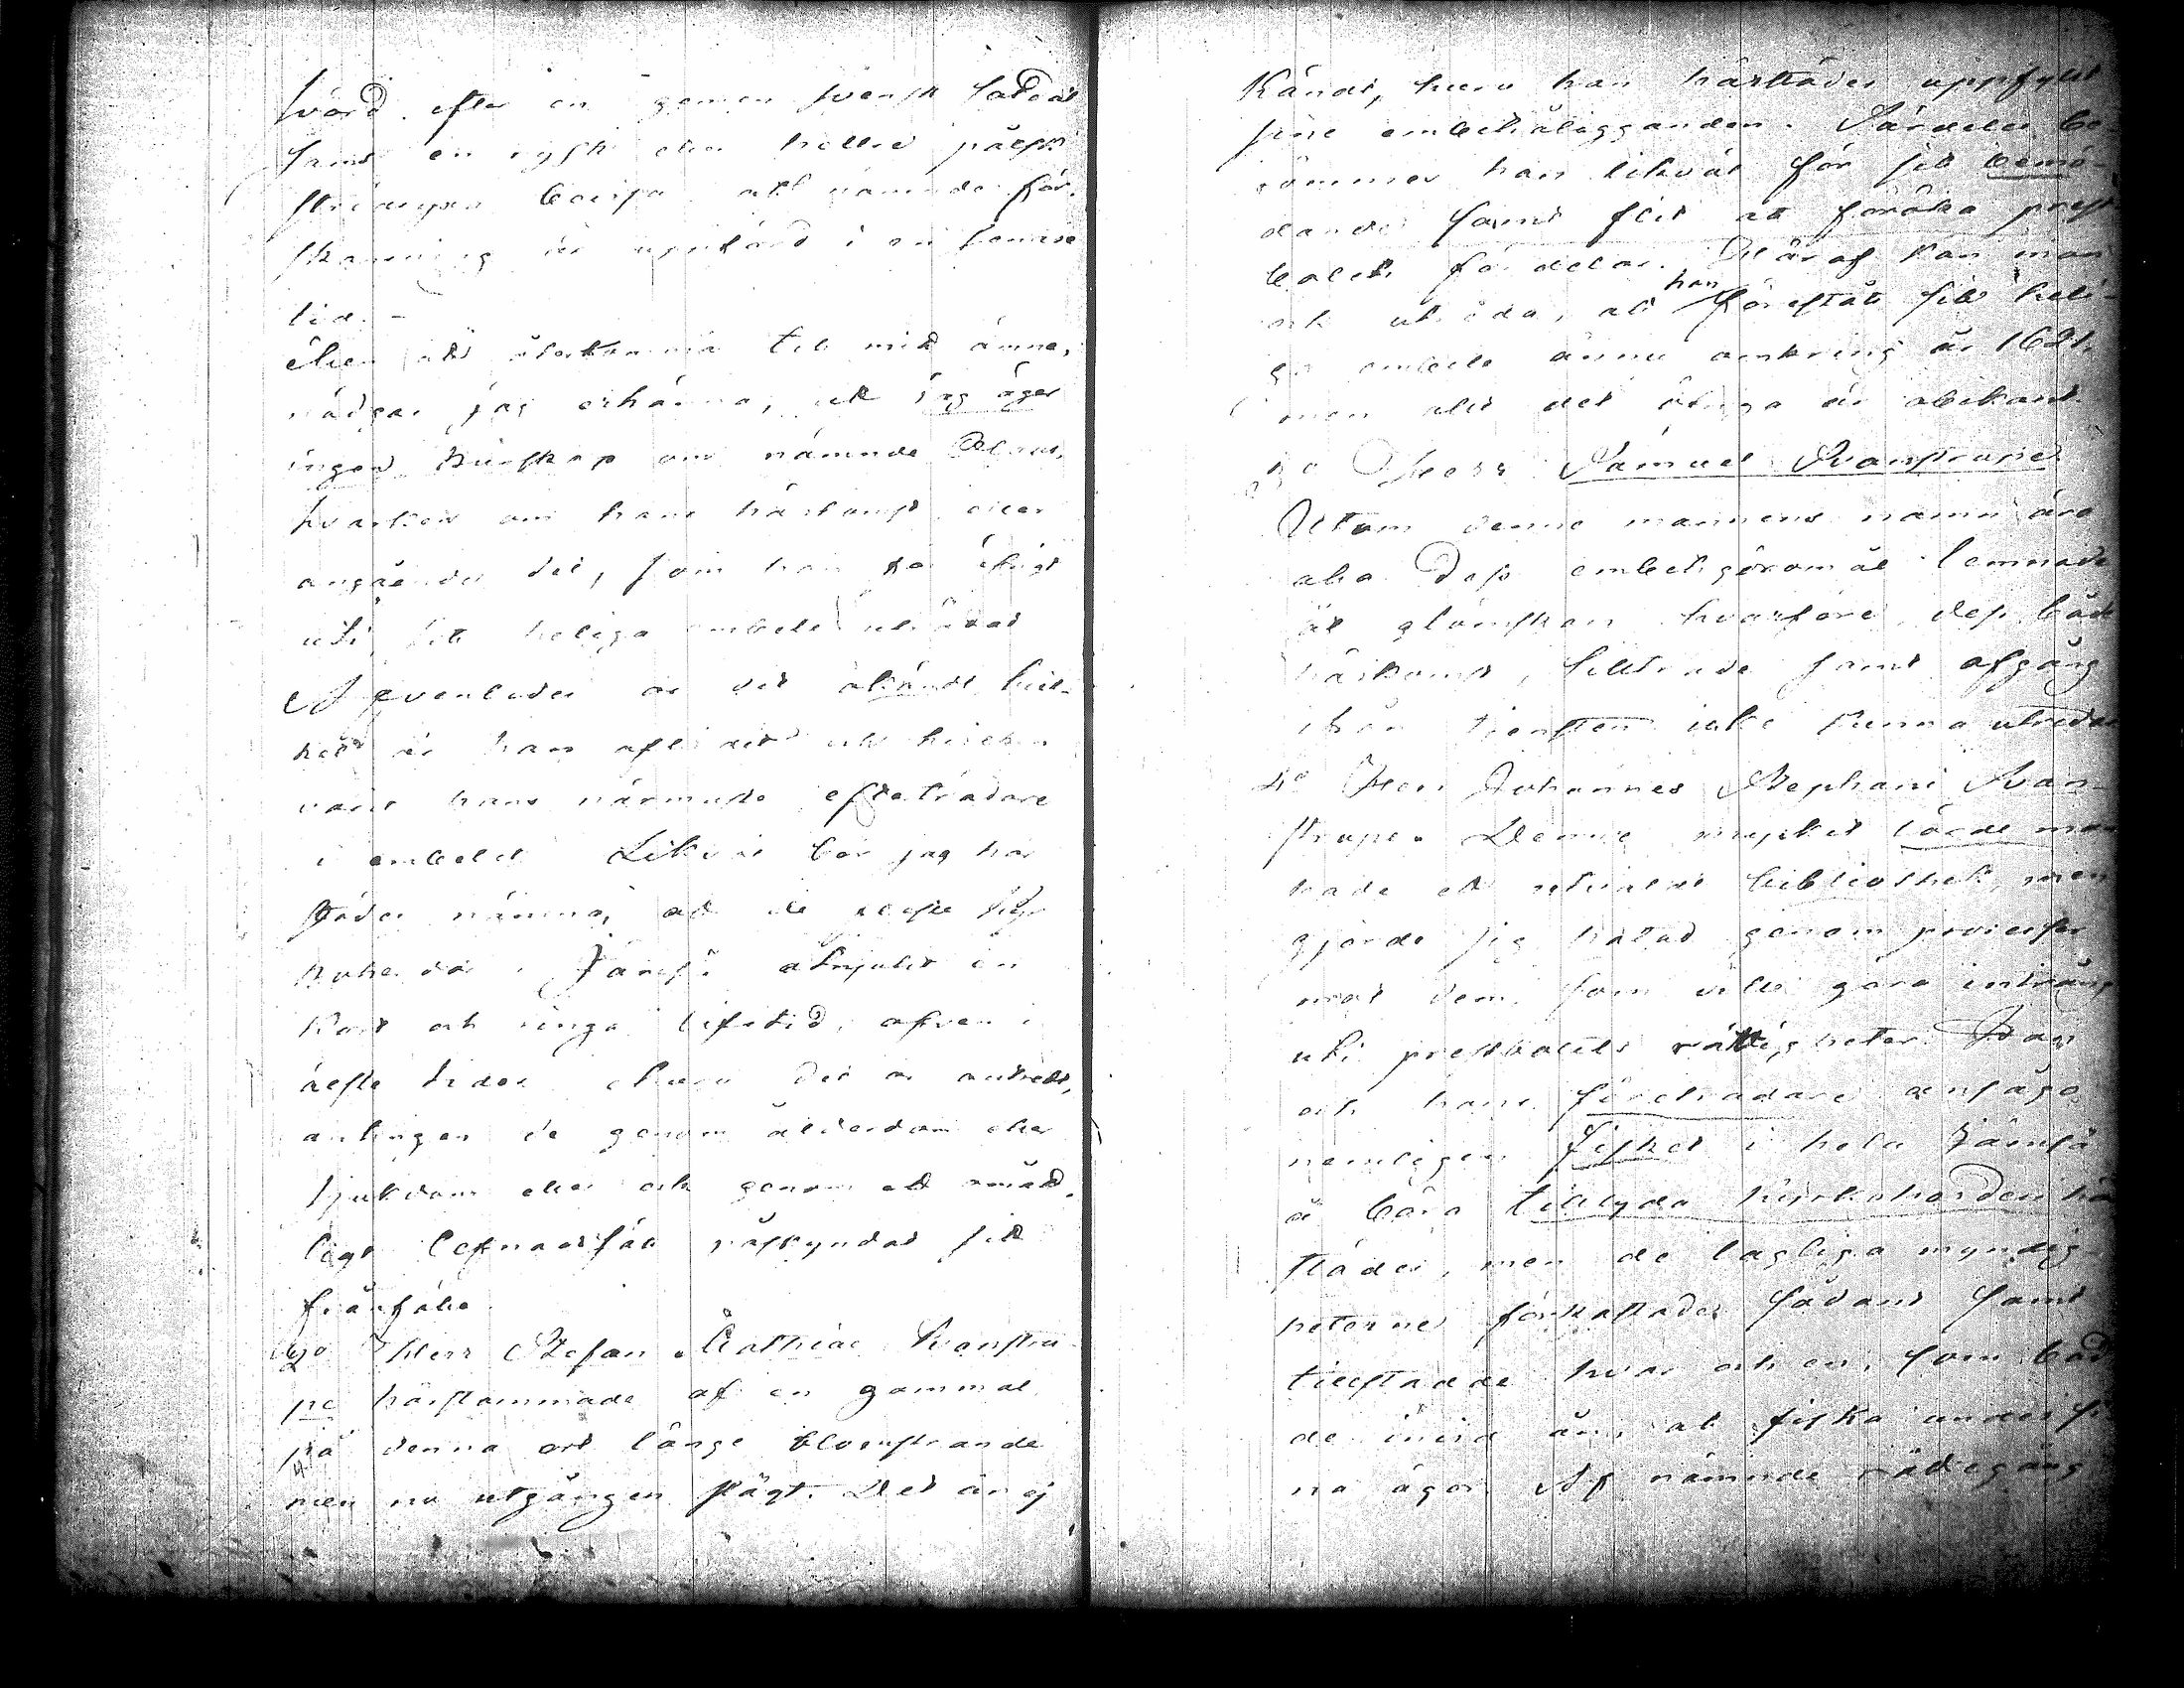 svärd efter en gemen svensk soldat
samt en rysk eller heller pålsk
stridsyxa bevisa at nämnde för
skansning är uppförd i en senare
tid. –
Men at återkomma til mit ämne,
nödgas jag erkänna, at jag äger
ingen kunskap om nämnde
hvarken om hans härkomst eller
angående det, som han har
uti sit heliga embete uträttat
Äfvenledes är det okändt hvil-
ket år han aflidit och hvilken
varit hans närmaste efterträdare
i embetet Likväl bör jag här
städes nämna, at de fleste
i Jämsä åtnjutit en
kort och ringa lifstid, äfven i
älste tider ehuru det är
antingen de genom ålderdom eller
sjukdom eller ock genom et omåt-
ligt lefnadssät påskyndat sit
frånfälle
2o Herr Stefan Matthiae Kvanstru
pe härstammade af en gammal
på denna ort länge blomstrande
men nu utgången slägt. Det är ej
Kändt, huru han härstädes uppfyllt
sine embetsåligganden. Särdeles be-
römmes han likväl för sit bemö-
dande samt flit at föröka prest
bolets fördelar. Häraf kan man
ock utröna, at han förestått sit heli-
ga embete ännu omkring år 1621,
men alt det öfriga är obekant
3o Herr Samuel Kvanstrupe
Utom denne mannens namn äro
alla dess embetsgöromål lemnade
åt glömskan hvarföre dess både
härkomst, tillträde samt afgång
ifrån tjensten icke kunna utredas
4o Herr Johannes Stephani Kvan-
strupe. Denne mycket lärde man
hade et utvaldt bibliothek, men
gjorde sig hatad genom processer
mot dem, som ville göra intrång
uti prestbolets rättigheter Han
och hans företrädare ansågo
nemligen fisket i hela Jämsä
å böra tillyda kyrkoherden här
städes, men de lagliga myndig-
heterne förkastades sådant samt
tilstadde hvar och en, som bod
de invid ån, at fiska under si
na ägor. Af nämnde rättegång